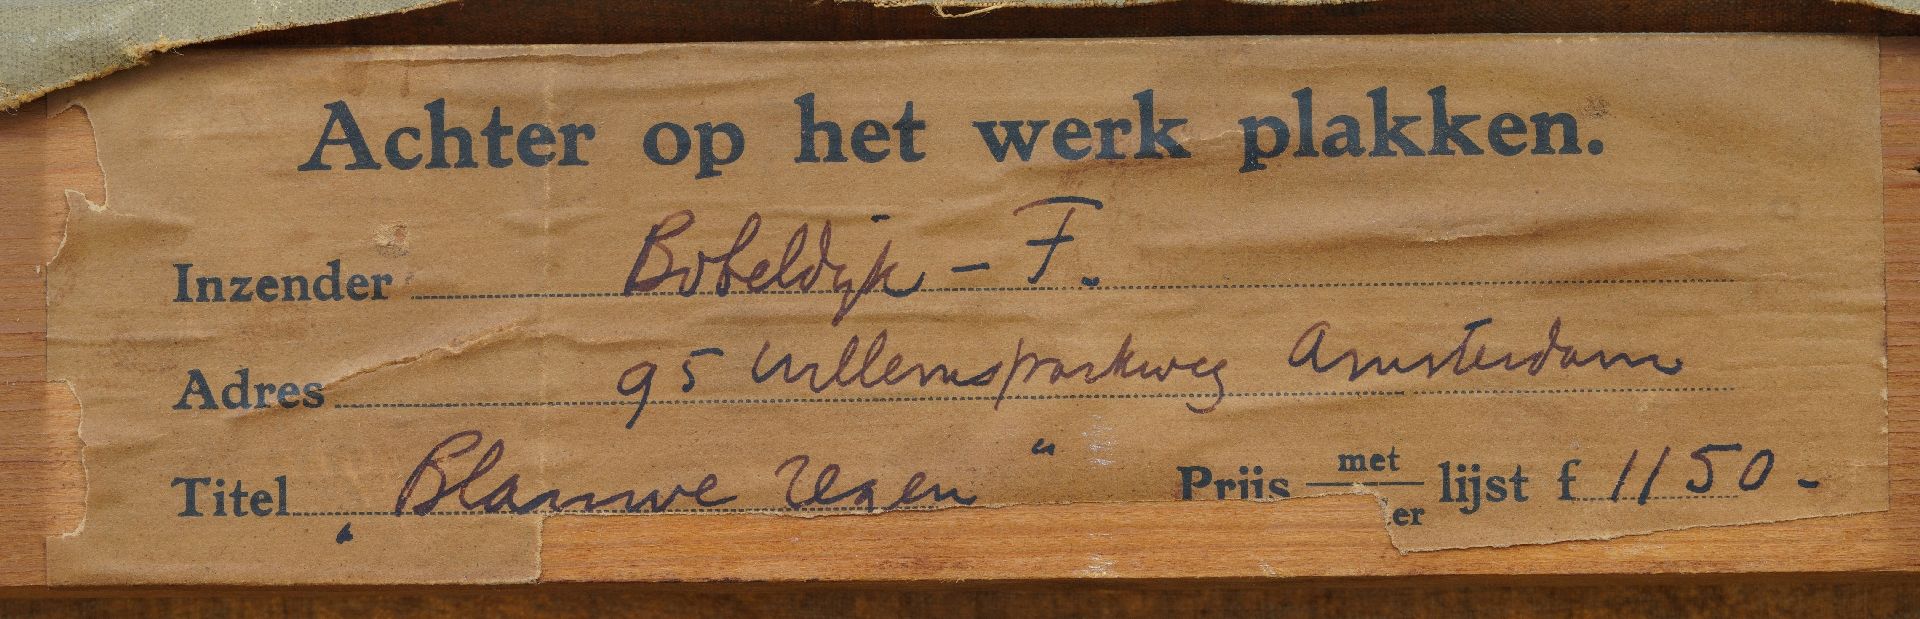 Achter op het werk plakken.
Inzender Bobeldijk – F.
Adres 95 Willemsparkweg Amsterdam
Titel „Blauwe regen“ Prijs met lijst f 1150 -
er